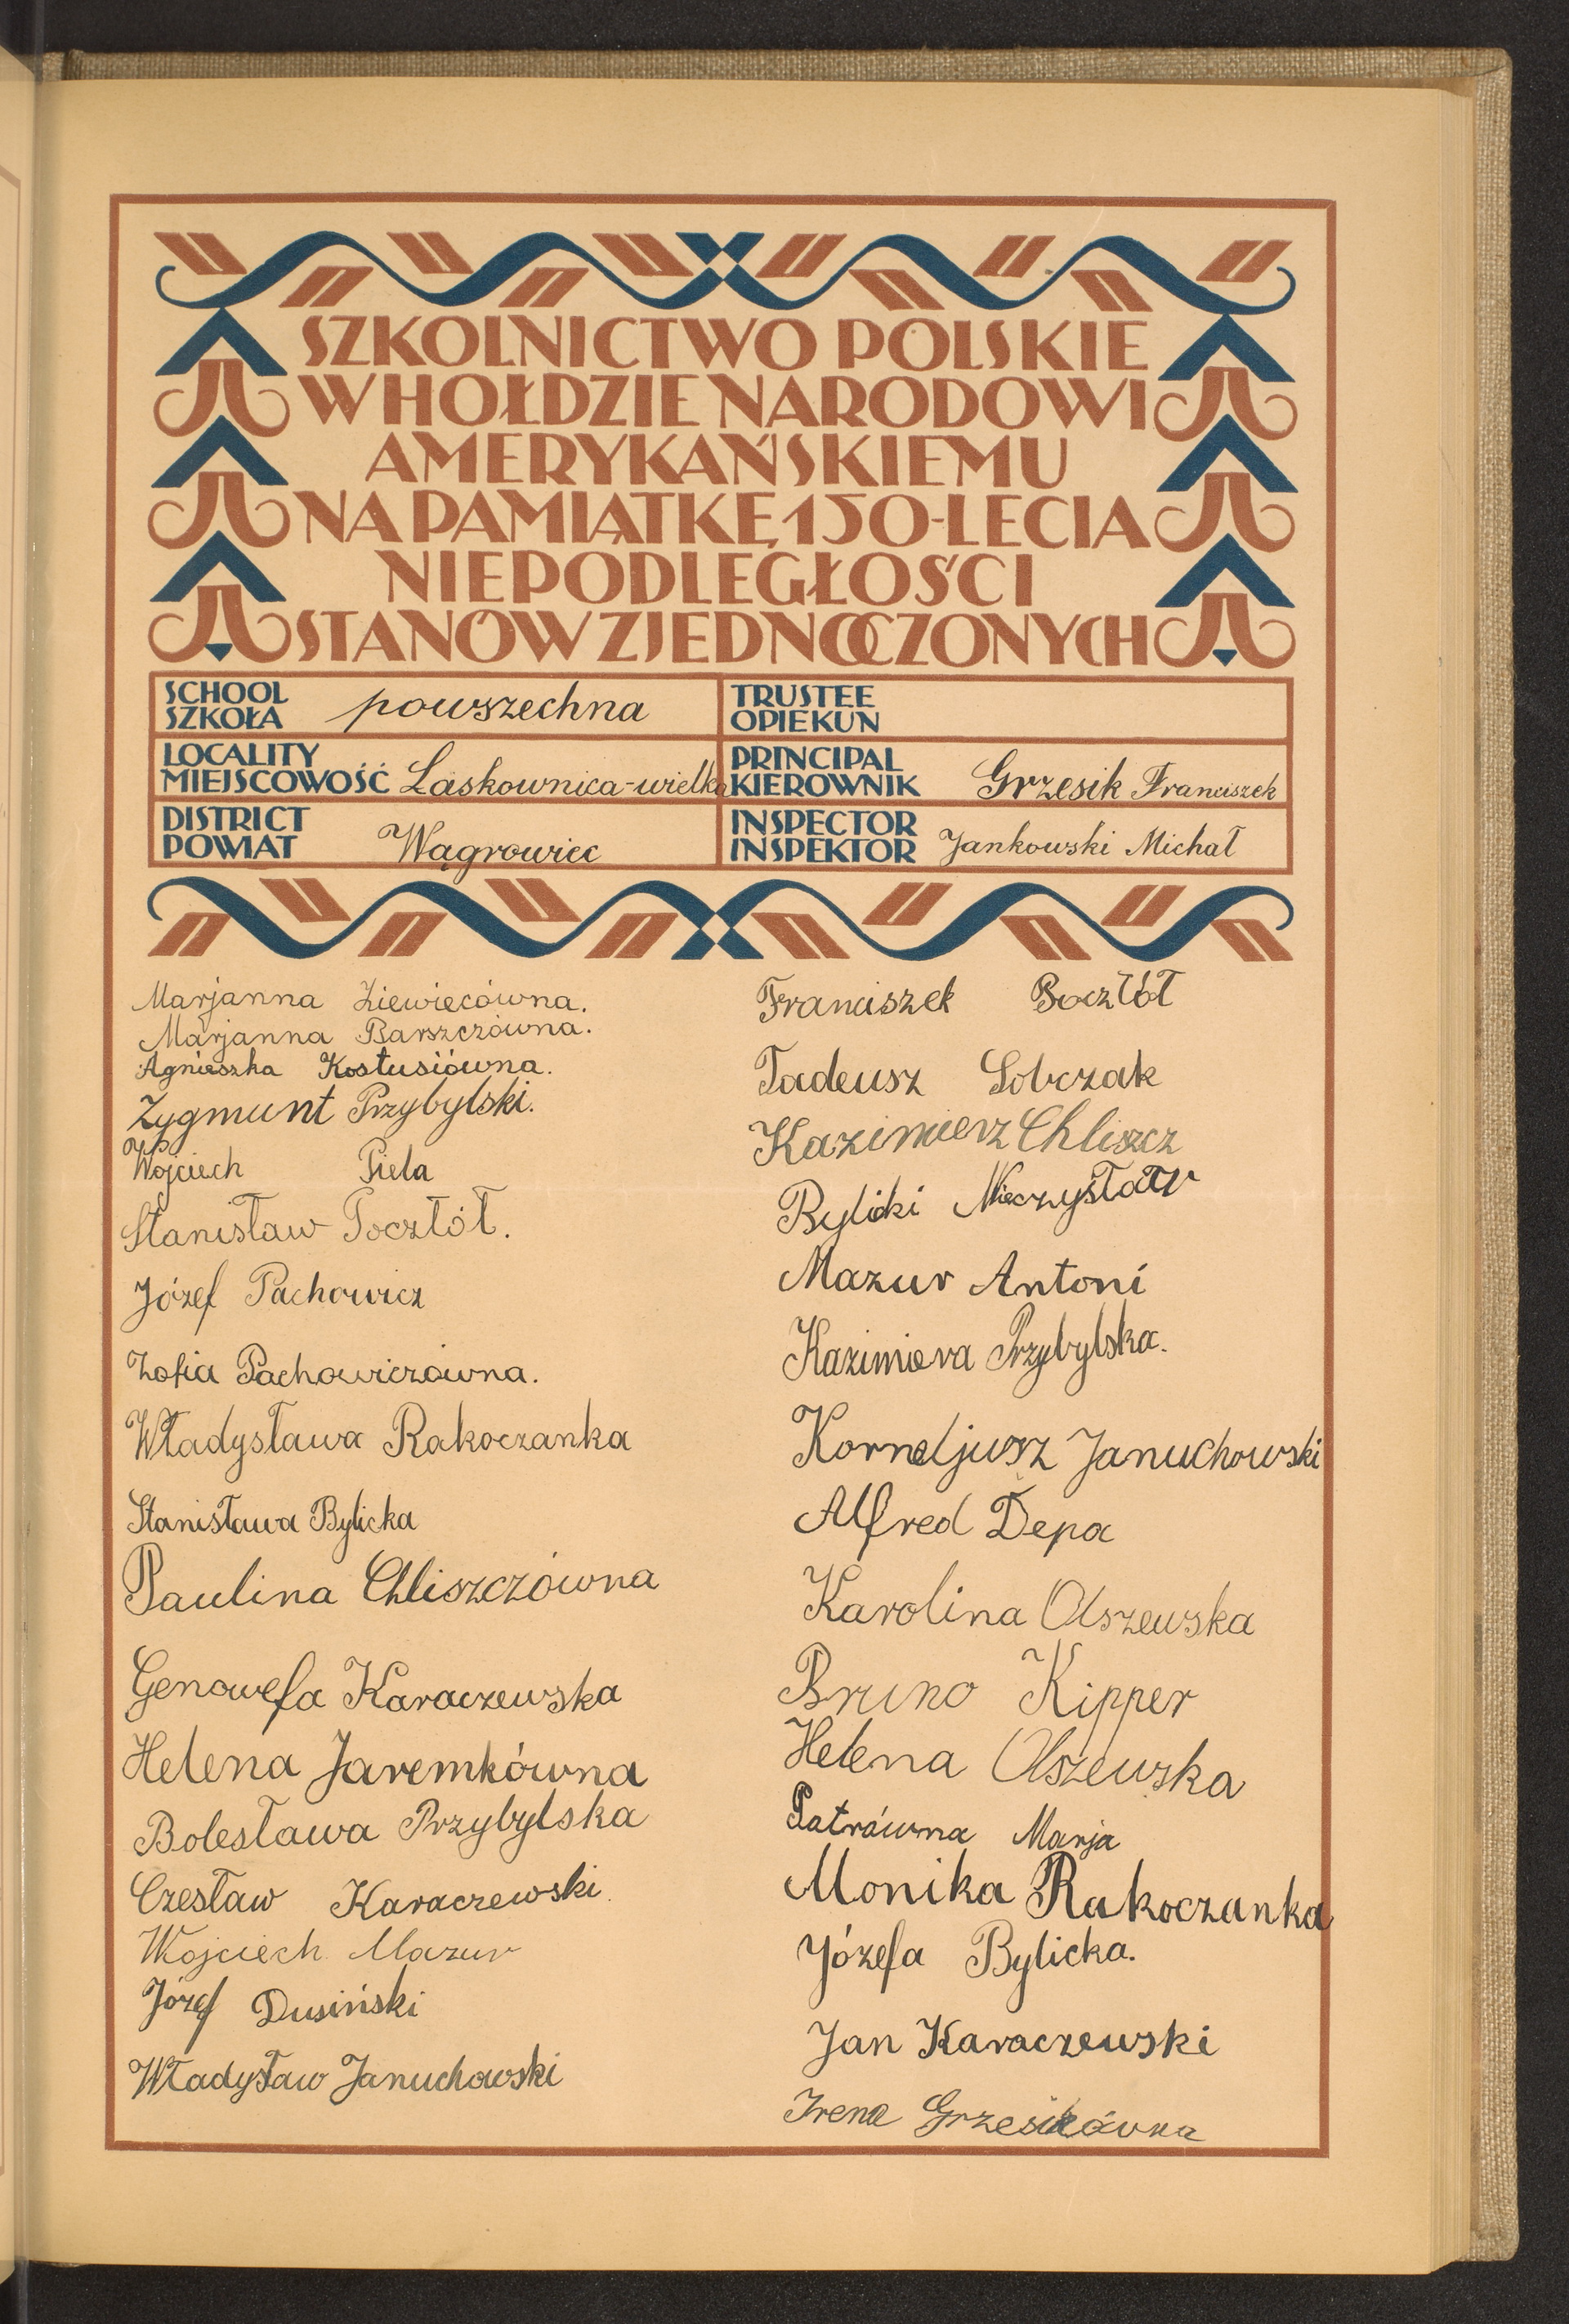 SZKOLNICTWO POLSKIE
W HOŁDZIE NARODOWI
AMERYKAŃSKIEMU
NA PAMIĄTKĘ 150-LECIA
NIEPODLEGŁOŚCI
STANÓW ZJEDNOCZONYCH
SCHOOL
SZKOŁA powszechna
TRUSTEE
OPIEKUN
LOCALITY
MIEJSCOWOŚĆ Laskownica-wielka
PRINCIPAL
KIEROWNIK Grzesik Franciszek
DISTRICT
POWIAT Wągrowiec
INSPECTOR
INSPEKTOR Jankowski Michał
Marjanna Ziewiecówna.
Marjanna Barszczówna.
Agnieszka Kostusiówna.
Zygmunt Przybylski.
Wojciech Piela
Stanisław Pocztół.
Józef Pachowicz
Zofia Pachowiczówna.
Władysława Rakoczanka
Stanisława Bylicka
Paulina Chliszczówna
Genowefa Karaczewska
Helena Jaremkówna
Bolesława Przybylska
Czesław Karaczewski.
Wojciech Mazur
Józef Dusiński
Władysław Januchowski
Franciszek Pocztół
Tadeusz Sobczak
Kazimierz Chliszcz
Bylicki Mieczysław
Mazur Antoni
Kazimiera Przybylska.
Korneljusz Januchowski
Alfred Depa
Karolina Olszewska
Bruno Kipper
Helena Olszewska
Patrówna Marja
Monika Rakoczanka
Józefa Bylicka.
Jan Karaczewski
Irena Grzesikówna